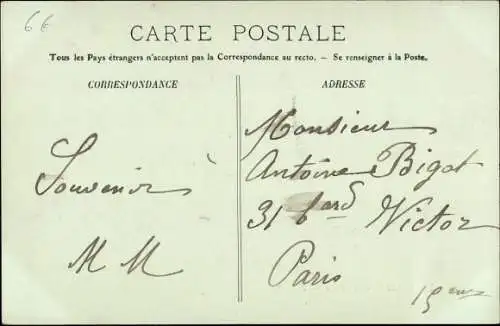 6€
CARTE POSTALE
Tous les Pays étrangers n'acceptent pas la Correspondance au recto. — Se renseigner à la Poste.
CORRESPONDANCE
ADRESSE
Souvenir
M M
Monsieur
Antoine Bigot
31 bard Victor
Paris
15eme